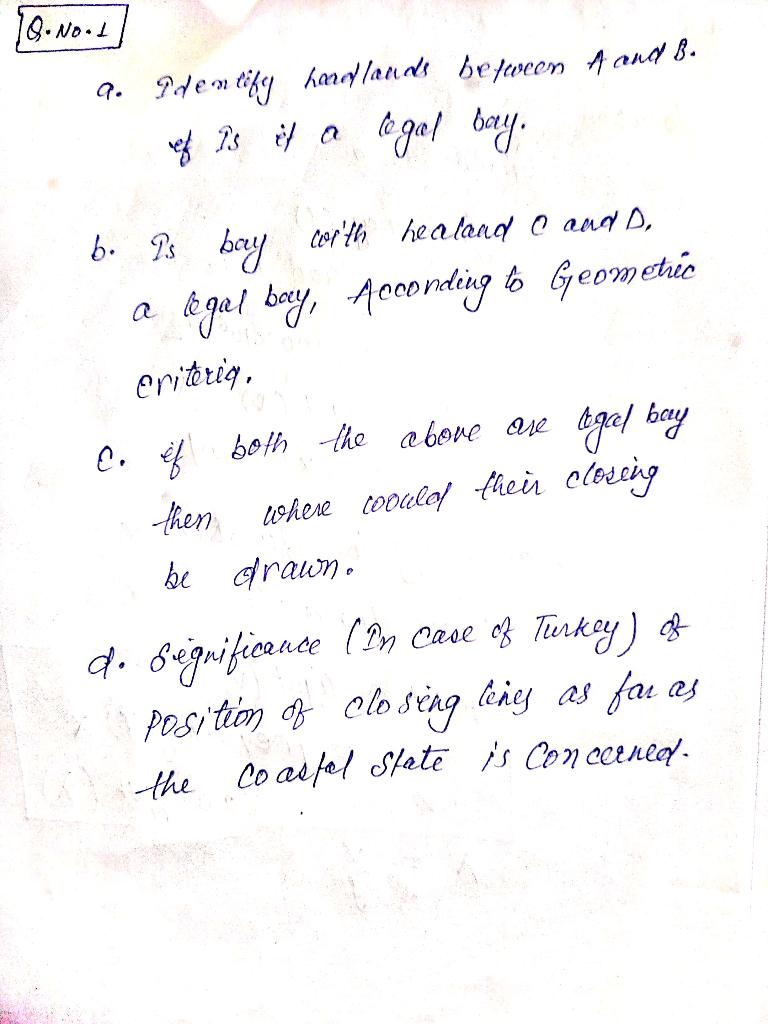 Q.No.1
a. Identify headlands between A and B.
if Is it a legal bay.
b. Is bay with healand C and D,
a legal bay, According to Geometric
criteria.
c. if both the above are legal bay
then where woould their closing
be drawn.
d. Significance (In case of Turkey) of
position of closing lines as far as
the coastal State is Concerned.